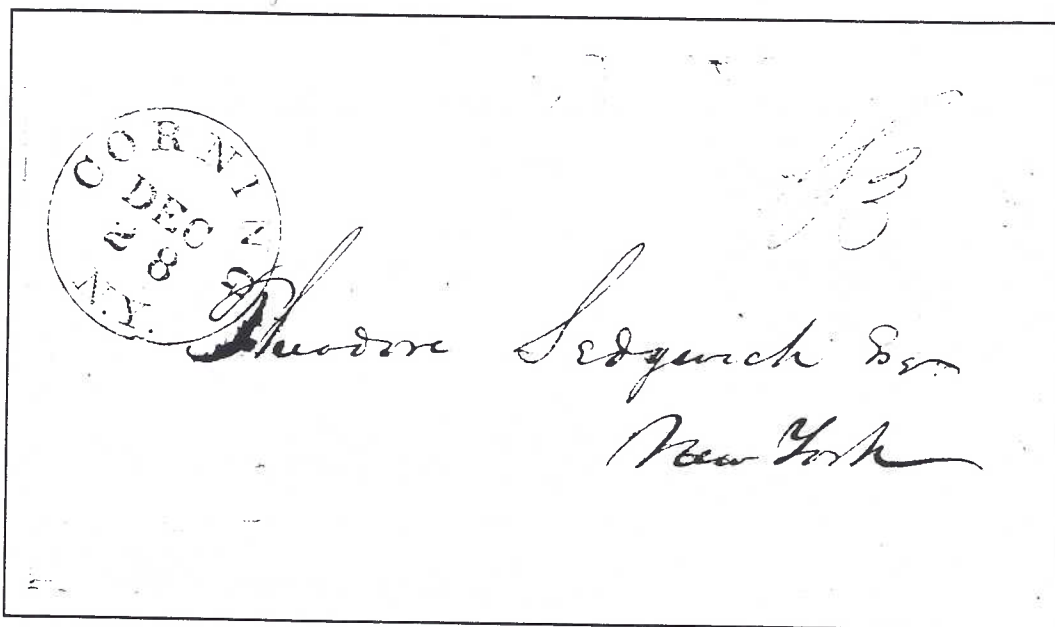 CORNING
DEC
28
N.Y.
Theodore Sedgwick Esqr
New York